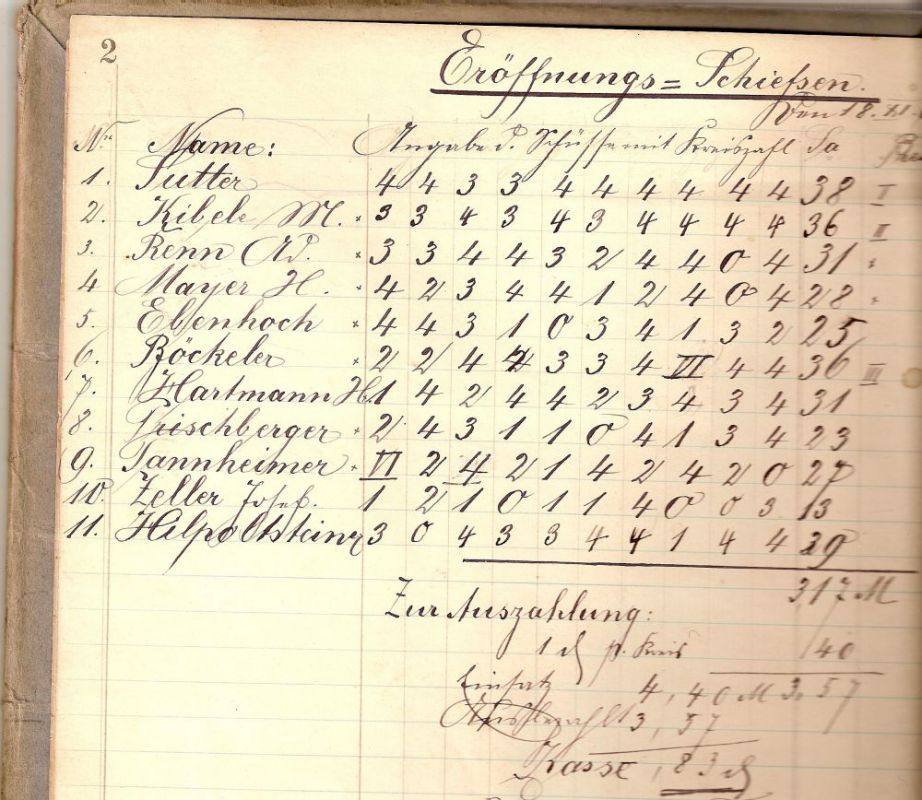 2
Eröffnungs=Schießen.
Den 18.
Nr. Name: Angabe d. Schüsse mit Kreiszahl Sa
1. Sutter 4 4 3 3 4 4 4 4 4 4 38 I
2. Kibele M. 3 3 4 3 4 3 4 4 4 4 36 II
3. Renn Ad. 3 3 4 4 3 2 4 4 0 4 31
4 Mayer H. 4 2 3 4 4 1 2 4 0 4 28
5. Ebenhoch 4 4 3 1 0 3 4 1 3 2 25
6. Röckeler 2 2 4 4 3 3 4 VI 4 4 36 III
7. Hartmann H. 1 4 2 4 4 2 3 4 3 4 31
8. Frischberger 2 4 3 1 1 0 4 1 3 4 23
9. Tannheimer VI 2 4 2 1 4 2 4 2 0 27
10. Zeller Josef. 1 2 1 0 1 1 4 0 0 3 13
11. Hilpoltsteiner 3 0 4 3 3 4 4 1 4 4 29
317 M
Zur Auszahlung:
1 d p. Kreis 40
Einsatz 4,40 M 3,57
3,57
Kasse ,83 d